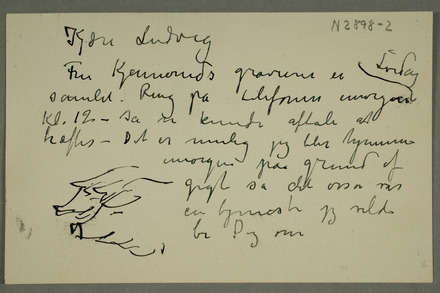 N2898-2
Kjære Ludvig
Fru graverne er Lördag
samlet. Ring på telefonen imorgen
kl. 12 – Så vi kunde aftale at
træffes – Det er mulig jeg blir hjemme
imorgen paa grund af
gigt så det osså var
en tjeneste jeg vilde
be Dig om